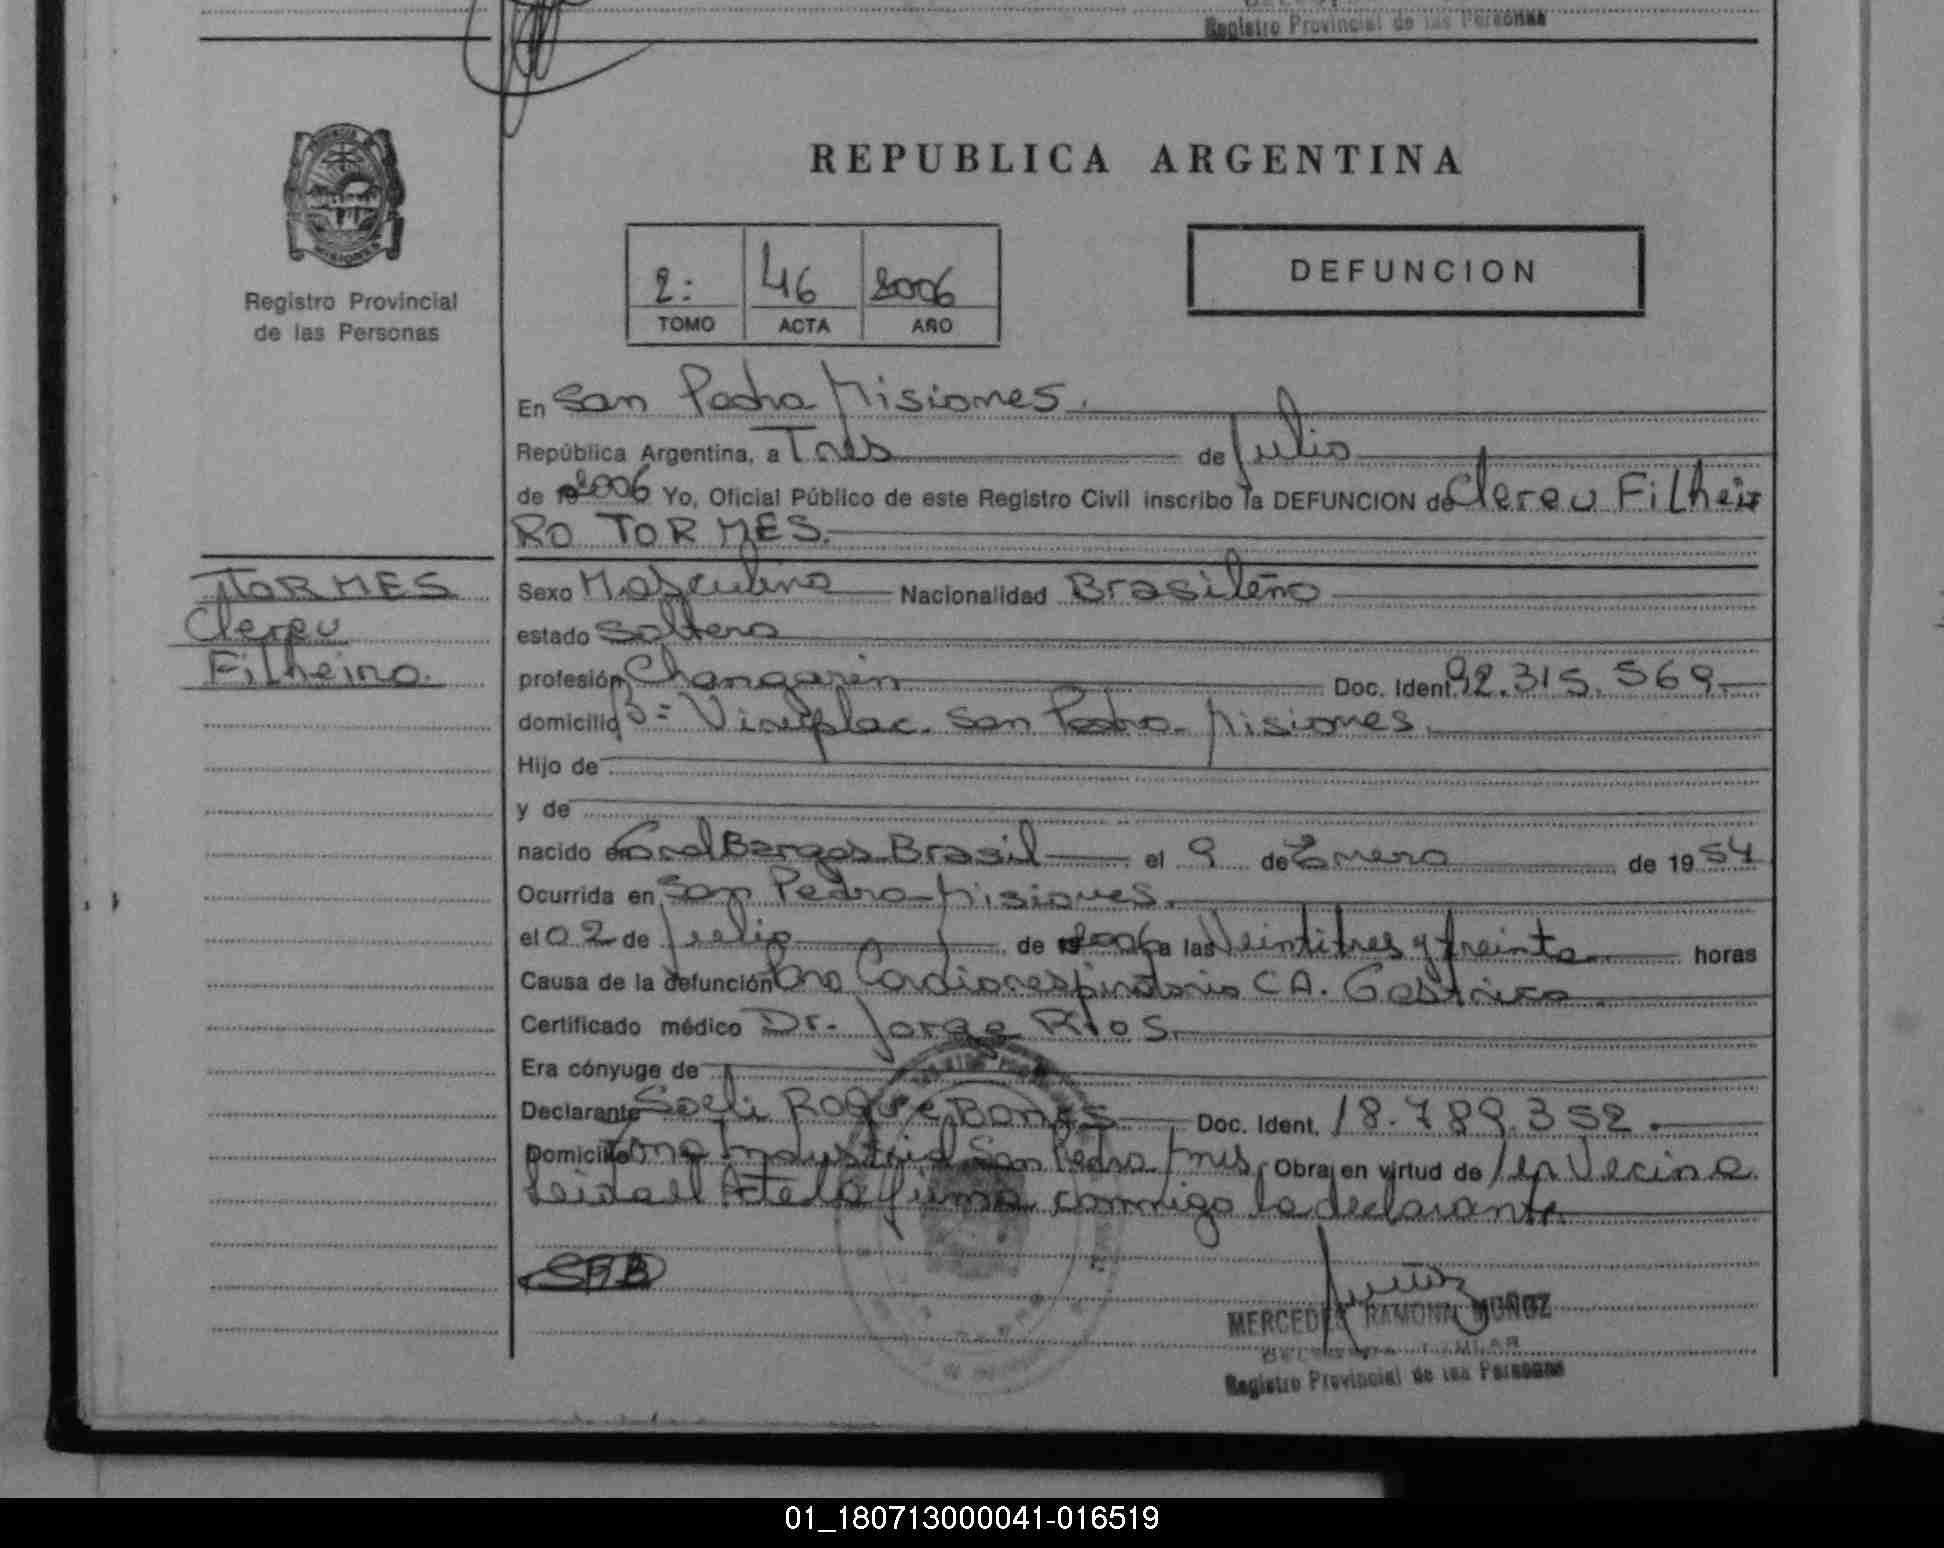 Registro Provincial de las Personas
REPUBLICA ARGENTINA
2: 46 2006
TOMO ACTA AÑO
DEFUNCION
Registro Provincial
de las Personas
En San Pedro Misiones.
República Argentina, a Tres de Julio
de 2006 Yo, Oficial Público de este Registro Civil inscribo la DEFUNCION de Clereu Filhei
RO TORMES.
TORMES
Clereu
Filheiro.
Sexo Masculino Nacionalidad Brasileño
estado Soltero
profesión Changarin Doc. Ident. 92.315.569.
domicilio Bº Viviplac. San Pedro. Misiones.
Hijo de
y de
nacido en Brasil el 9 de Enero de 1954
Ocurrida en San Pedro Misiones.
el 02 de Julio de 2006 a las Veintitres y treinta horas
Causa de la defunción Paro Cardiorespiratorio CA. Gastrico
Certificado médico Dr. Jorge Rios.
Era cónyuge de
Declarante Soeli Roque Bones Doc. Ident. 18.789.352.
Domicilio Zona Industrial San Pedro Mnes, Obra en virtud de ser Vecina.
Leida el Acta la firma conmigo la declarante
SRB
MERCEDES RAMONA MUÑOZ
Registro Provincial de las Personas
01_180713000041-016519